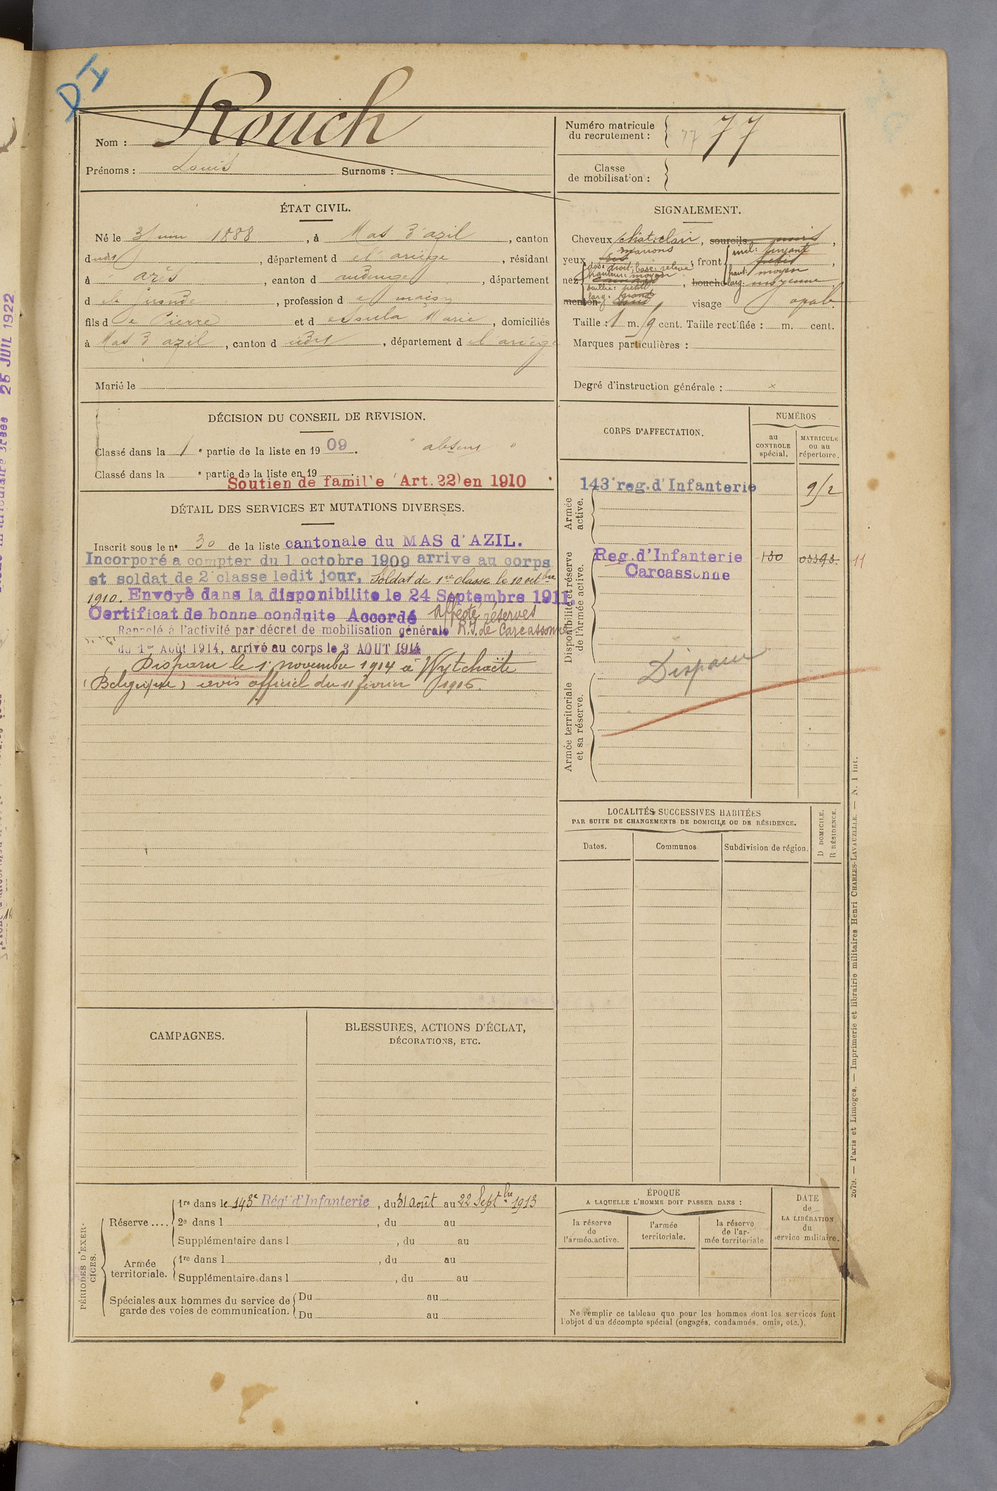 DI
Rouch
Nom :
Numéro matricule
du recrutement :
77
77
Prénoms : Louis Surnoms :
Classe
de mobilisation :
ÉTAT CIVIL.
Né le 3 juin 1888, à Mas d'azil, canton
dudit, département de l'ariège, résidant
à arès, canton d audenge, département
de la gironde, profession d
fils de Pierre et de Marie, domiciliés
à Mas d'azil, canton dudit, département de l'ariège
Marié le
SIGNALEMENT.
Cheveux chat: clair, sourcils noirs,
yeux marrons, front incl: fuyante
haut: moyen
nez dos: droit: base: relevé
hauteur: moyen
saillie: petit
larg: grand
, bouche moyenne
menton visage ovale
Taille : 1 m. cent. Taille rectifiée : m. cent.
Marques particulières :
Degré d'instruction générale : x
DÉCISION DU CONSEIL DE REVISION.
Classé dans la 1 e partie de la liste en 1909. " absent "
Classé dans la e partie de la liste en 19 .
Soutien de famille (Art. 22) en 1910
CORPS D'AFFECTATION.
NUMÉROS
au
CONTROLE
spécial.
MATRICULE
ou au
répertoire.
Armée
active.
143e reg. d'Infanterie
Disponibilité et réserve
de l'armée active.
Reg. d'Infanterie
Carcassonne
Armée territoriale
et sa réserve.
Disparu
DÉTAIL DES SERVICES ET MUTATIONS DIVERSES.
Inscrit sous le n° 30 de la liste cantonale du MAS d'AZIL.
Incorporé a compter du 1 octobre 1909 arrive au corps
et soldat de 2e classe ledit jour, Soldat de 1re classe le 10 octobre
1910. Envoyé dans la disponibilité le 24 Septembre 1911.
Certificat de bonne conduite Accordé Affecté réserves
R.I. de Carcassonne
Rappelé à l'activité par décret de mobilisation générale
du 1er Août 1914, arrivé au corps le 3 AOUT 1914
Disparu le 1er novembre 1914 à Wytchaëte
(Belgique) avis officiel du 11 février 1915.
LOCALITÉS SUCCESSIVES HABITÉES
PAR SUITE DE CHANGEMENTS DE DOMICILE OU DE RÉSIDENCE.
Dates.
Communes
Subdivision de région.
D DOMICILE.
R RÉSIDENCE.
CAMPAGNES.
BLESSURES, ACTIONS D'ÉCLAT,
DÉCORATIONS, ETC.
PÉRIODES D'EXER-
CICES.
Réserve ....
1re dans le 143e Rég' d'Infanterie, du 31 août au 22 Septbre 1913
2e dans l , du au
Supplémentaire dans l , du au
Armée
territoriale.
1re dans l , du au
Supplémentaire dans l , du au
Spéciales aux hommes du service de
garde des voies de communication.
Du au
Du au
ÉPOQUE
A LAQUELLE L'HOMME DOIT PASSER DANS :
la réserve
de
l'armée active.
l'armée
territoriale.
la réserve
de l'ar-
mée territoriale
DATE
de
LA LIBÉRATION
du
service militaire.
Ne remplir ce tableau que pour les hommes dont les services font
l'objet d'un décompte spécial (engagés, condamnés, omis, etc.).
2079. — Paris et Limoges. — Imprimerie et librairie militaires Henri CHARLES-LAVAUZELLE. — N. 1 int.
25 JUIL 1922